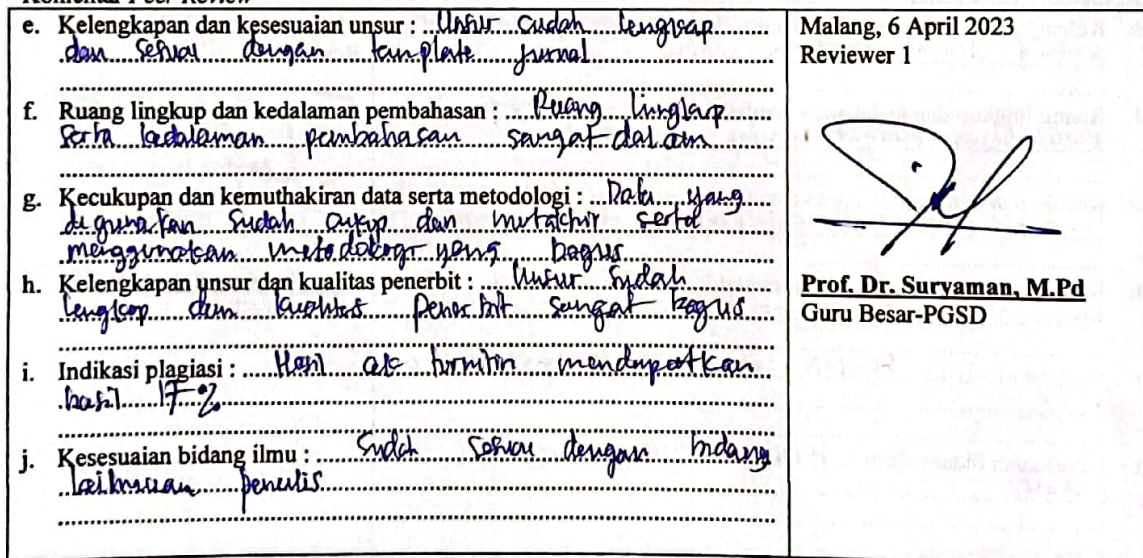 Komentar Peer Review
e. Kelengkapan dan kesesuaian unsur : Unsur sudah lengkap
dan sesuai dengan template jurnal
f. Ruang lingkup dan kedalaman pembahasan : Ruang lingkup
serta kedalaman pembahasan sangat dalam
g. Kecukupan dan kemuthakiran data serta metodologi : Data yang
digunakan sudah cukup dan mutakhir serta
menggunakan metodologi yang bagus
h. Kelengkapan unsur dan kualitas penerbit : Unsur sudah
lengkap dan kualitas penerbit sangat bagus
i. Indikasi plagiasi : Hasil cek turnitin mendapatkan
hasil 17 %
j. Kesesuaian bidang ilmu : Sudah sesuai dengan bidang
keilmuan penulis
Malang, 6 April 2023
Reviewer 1
Prof. Dr. Suryaman, M.Pd
Guru Besar-PGSD